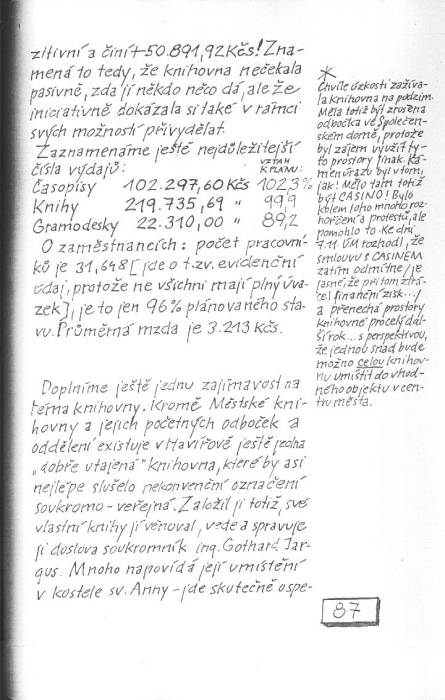 zitivní a činí +50.891,92 Kčs! Zna-
mená to tedy, že knihovna nečekala
pasivně, zda jí někdo něco dá, ale že
iniciativně dokázala si také v rámci
svých možností přivydělat.
Zaznamenáme ještě nejdůležitější
čísla výdajů:
VZTAH
K PLÁNU:
Časopisy 102.297,60 Kčs 102,3%
Knihy 219.735,69 " 99,9
Gramodesky 22.310,00 " 89,2
O zaměstnancích: počet pracovní-
ků je 31,648 [jde o t.zv. evidenční
údaj, protože ne všichni mají plný úva-
zek], je to jen 96% plánovaného sta-
vu. Průměrná mzda je 3.213 Kčs.
Doplníme ještě jednu zajímavost na
téma knihovny. Kromě Městské kni-
hovny a jejích početných odboček a
oddělení existuje v Havířově ještě jedna
„dobře utajená" knihovna, které by asi
nejlépe slušelo nekonvenční označení
soukromo-veřejná. Založil ji totiž, své
vlastní knihy jí věnoval, vede a spravuje
ji doslova soukromník ing. Gothard Jar-
gus. Mnoho napovídá její umístění
v kostele sv. Anny - jde skutečně o spe-
*
Chvíle úzkosti zažíva-
la knihovna na podzim.
Měla totiž být zrušena
odbočka ve Společen-
ském domě, protože
byl zájem využít ty-
to prostory jinak. Ká-
men úrazu byl v tom,
jak! Mělo tam totiž
být CASINO! Bylo
kolem toho mnoho roz-
hořčení a protestů, ale
pomohlo to. Ke dni
7.11. ÚM rozhodl, že
smlouvu s CASINEM
zatím odmítne /je
jasné, že přitom ztrá-
cel finanční zisk.../
a přenechá prostory
knihovně pro celý dal-
ší rok... s perspektivou,
že jednou snad bude
možno celou knihov-
nu umístit do vhod-
ného objektu v cen-
tru města.
87